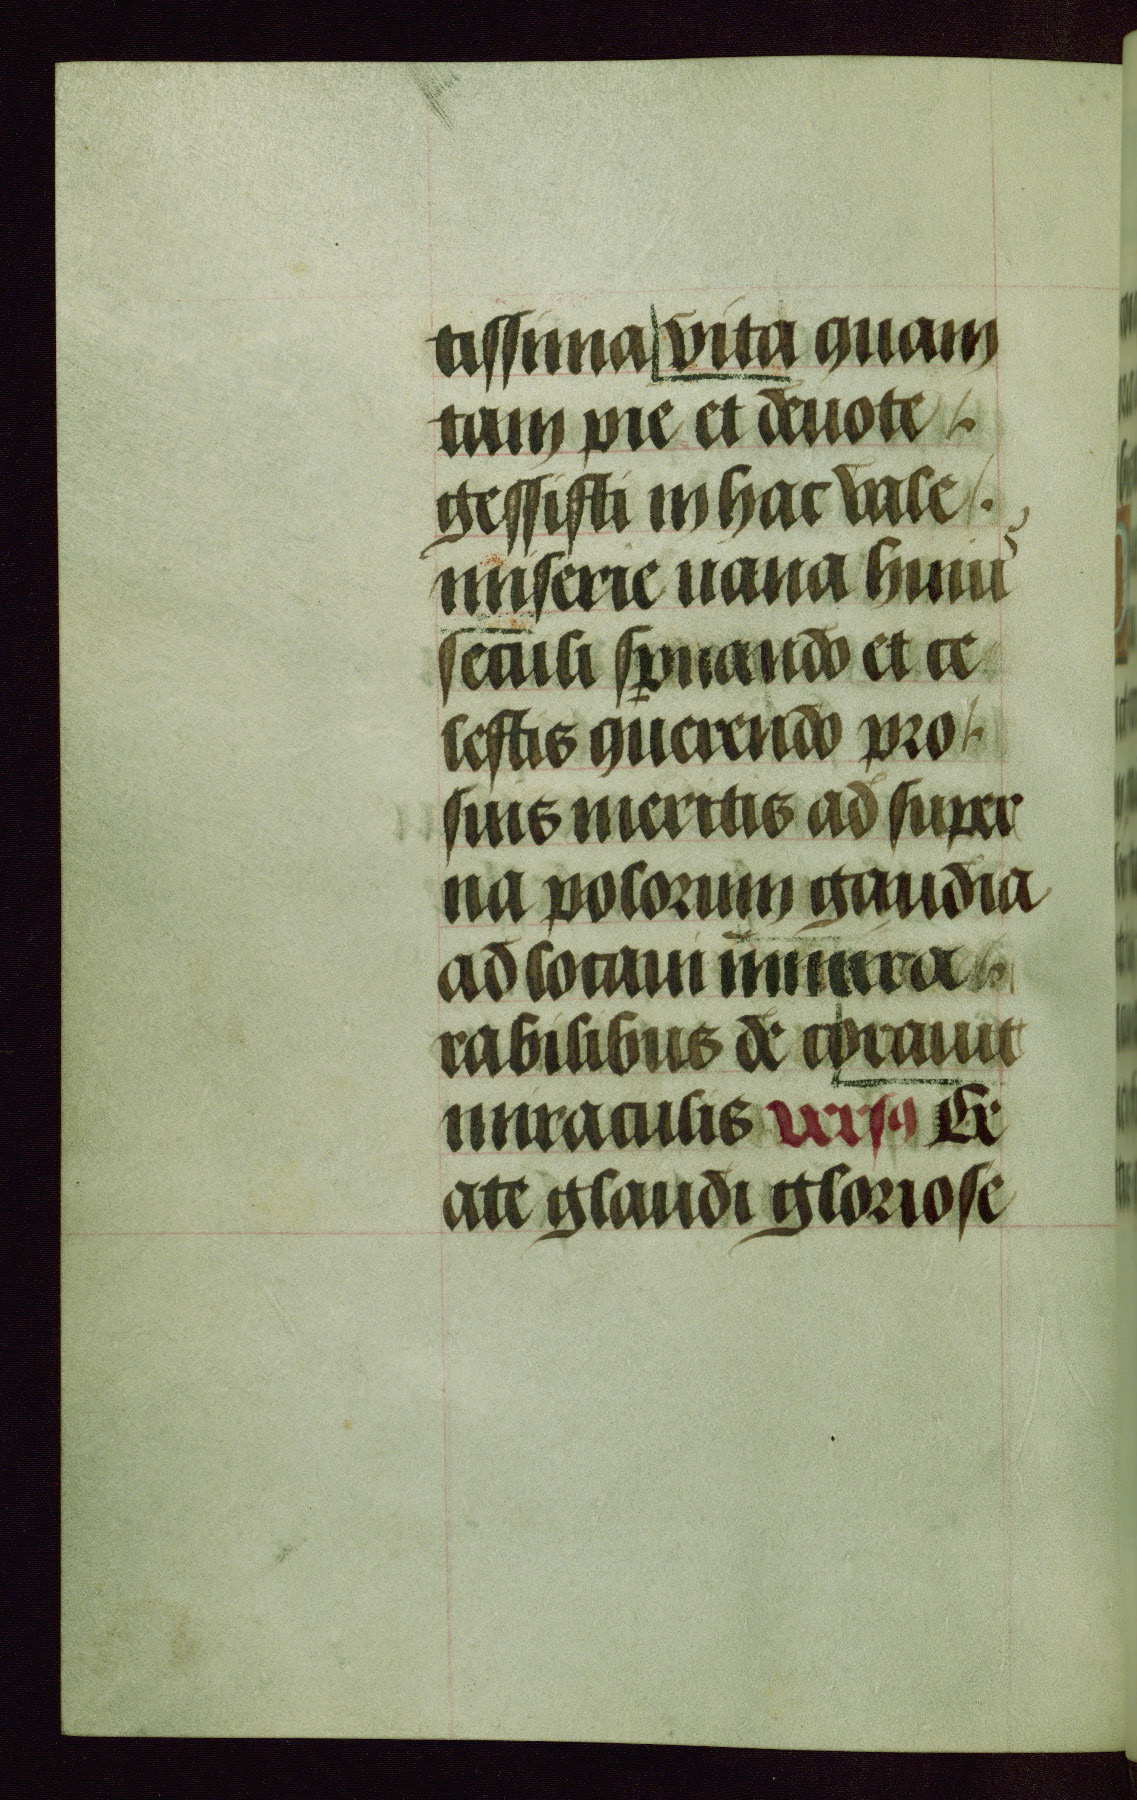 tissima vita quam
tam pie et deuote
gessisti in hac vale
miserie uana huiu᷒
seculi sp̱nando et ce
lestis querendo pro
suis meritis ad super
na polorum gaudia
ad locaui
rabilibus de corauit
miraculis vers9 Er
ate glaudi gloriose